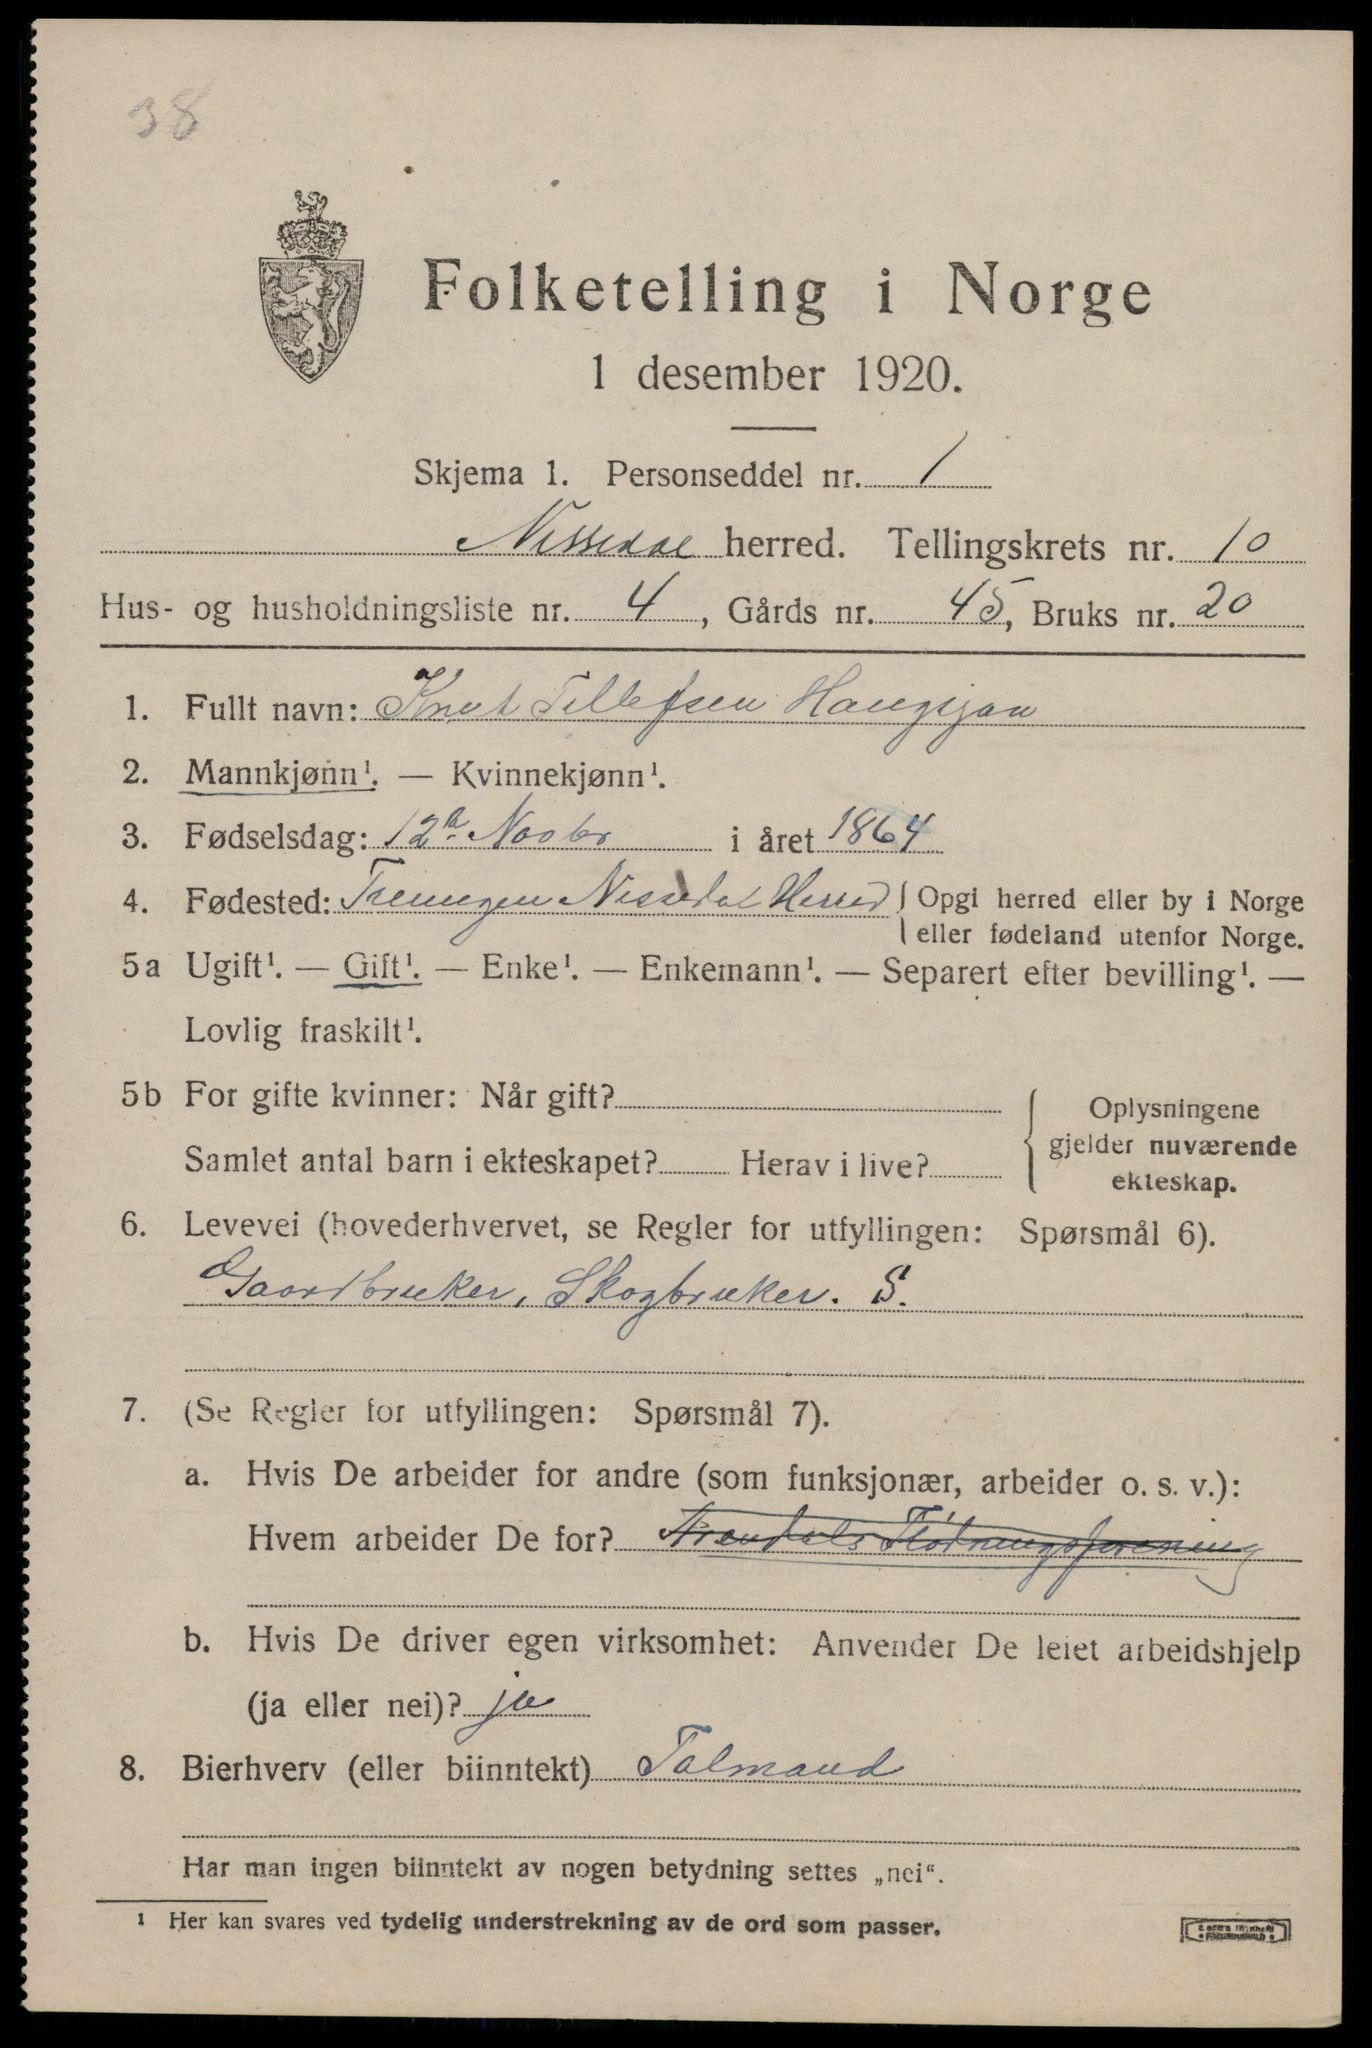 38
Folketelling i Norge
1 desember 1920.
Skjema 1. Personseddel nr. 1
Nissedal herred. Tellingskrets nr. 10
Hus- og husholdningsliste nr. 4, Gårds nr. 45, Bruks nr. 20
1. Fullt navn: Knut Tellefsen Haugsjaa
2. Mannkjønn¹. — Kvinnekjønn¹.
3. Fødselsdag: 12te Novbr i året 1864
4. Fødested: Treungen Nissedal Herred Opgi herred eller by i Norge
eller fødeland utenfor Norge.
5a Ugift¹. — Gift¹. — Enke¹. — Enkemann¹. — Separert efter bevilling¹. —
Lovlig fraskilt¹.
5b For gifte kvinner: Når gift?
Samlet antal barn i ekteskapet? Herav i live?
Oplysningene
gjelder nuværende
ekteskap.
6. Levevei (hovederhvervet, se Regler for utfyllingen: Spørsmål 6).
Gaardbruker, Skogbruker. S.
7. (Se Regler for utfyllingen: Spørsmål 7).
a. Hvis De arbeider for andre (som funksjonær, arbeider o. s. v.):
Hvem arbeider De for? Arendals Flødningsforening
b. Hvis De driver egen virksomhet: Anvender De leiet arbeidshjelp
(ja eller nei)? ja
8. Bierhverv (eller biinntekt) Tolmand
Har man ingen biinntekt av nogen betydning settes „nei“.
¹ Her kan svares ved tydelig understrekning av de ord som passer.